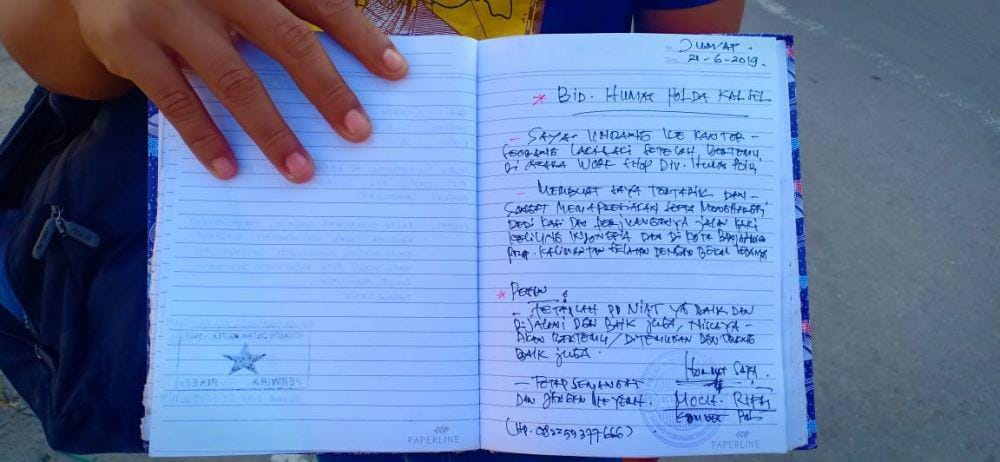 JUM'AT.
21-6-2019.
* BID. HUMAS POLDA KALSEL
- SAYA UNDANG KE KANTOR -
SEORANG LAKI-LAKI SETELAH BERTEMU
DI ACARA WORK SHOP DIV. HUMAS POLRI
- MEMBUAT SAYA TERTARIK DAN -
SANGAT MENGAPRESIASIKAN SERTA MENGHARGAI
DEDIKASI DAN PERJUANGANNYA JALAN KAKI
KELILING INDONESIA DAN DI KOTA
PROP. KALIMANTAN SELATAN DENGAN BEKAL
* PESAN
- TETAPLAH PD NIAT YG BAIK DAN
DIJALANI DGN BAIK JUGA, NISCAYA -
AKAN BERTEMU / DITEMUKAN DGN ORANG
BAIK JUGA.
- TETAP SEMANGAT
DAN JANGAN MENYERAH.
HORMAT SAYA
MOCH. RIFAI
KOMBES POL
(HP. 082259377666)
PAPERLINE
PAPERLINE